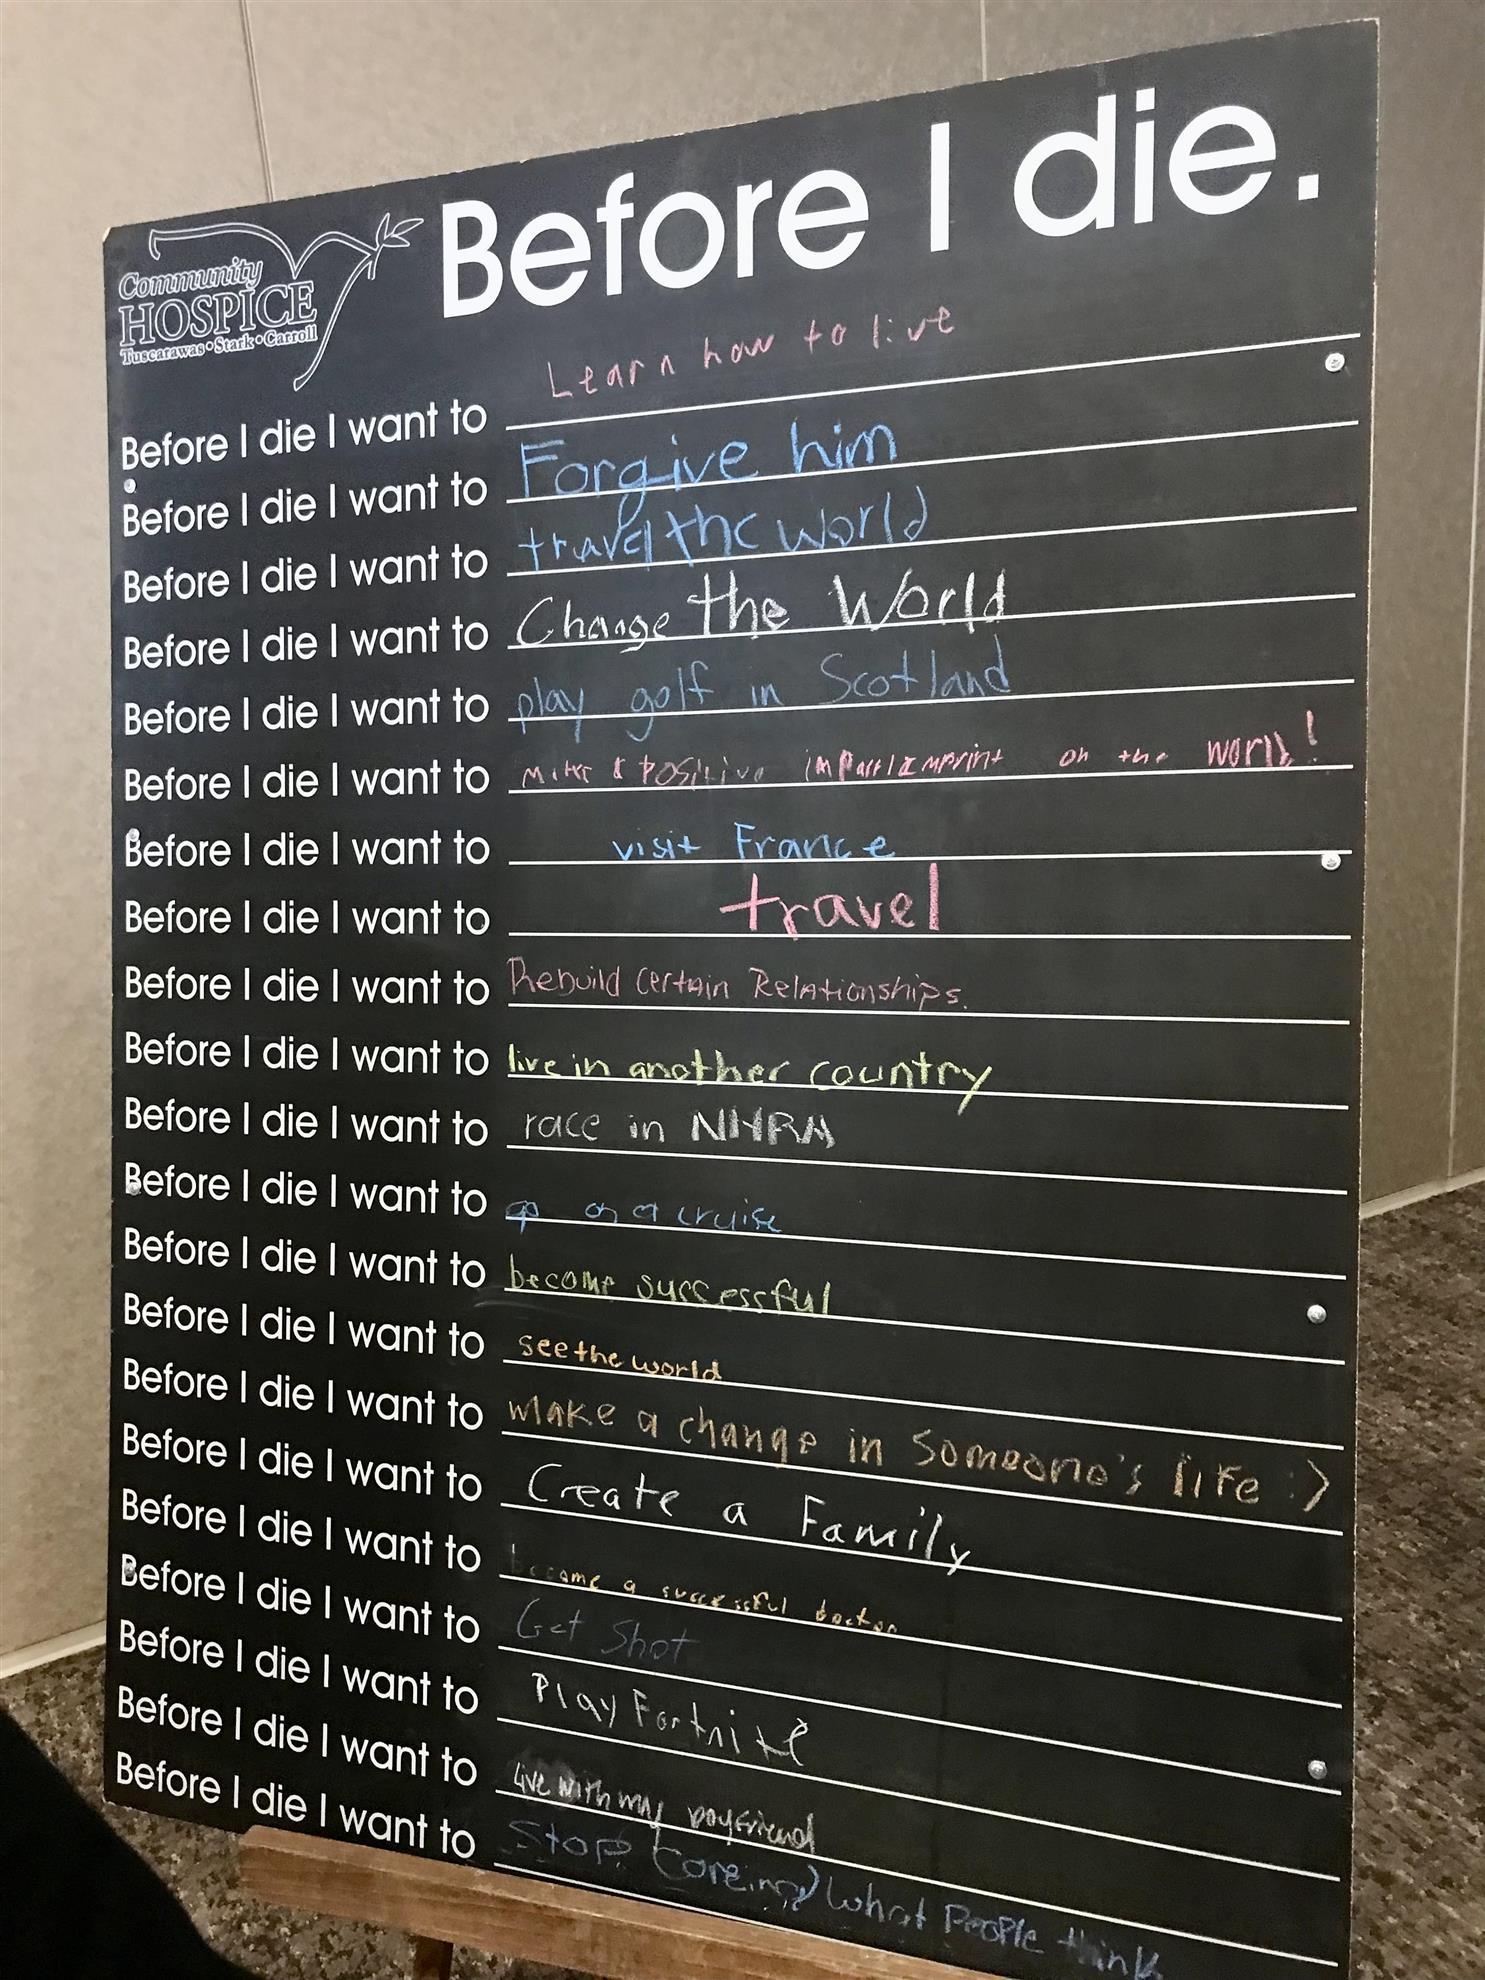 Before I die.
Community
HOSPICE
Tuscarawas • Stark • Carroll
Before I die I want to Learn how to live
Before I die I want to Forgive him
Before I die I want to travel the world
Before I die I want to Change the World
Before I die I want to play golf in Scotland
Before I die I want to make a positive impact/imprint on the world!
Before I die I want to visit France
Before I die I want to travel
Before I die I want to Rebuild certain Relationships.
Before I die I want to live in another country
Before I die I want to race in NHRA
Before I die I want to go on a cruise
Before I die I want to become successful
Before I die I want to see the world
Before I die I want to make a change in someone's life :)
Before I die I want to Create a Family
Before I die I want to become a successful doctor
Before I die I want to Get Shot
Before I die I want to Play Fortnite
Before I die I want to live with my boyfriend
Before I die I want to Stop Careing What People think